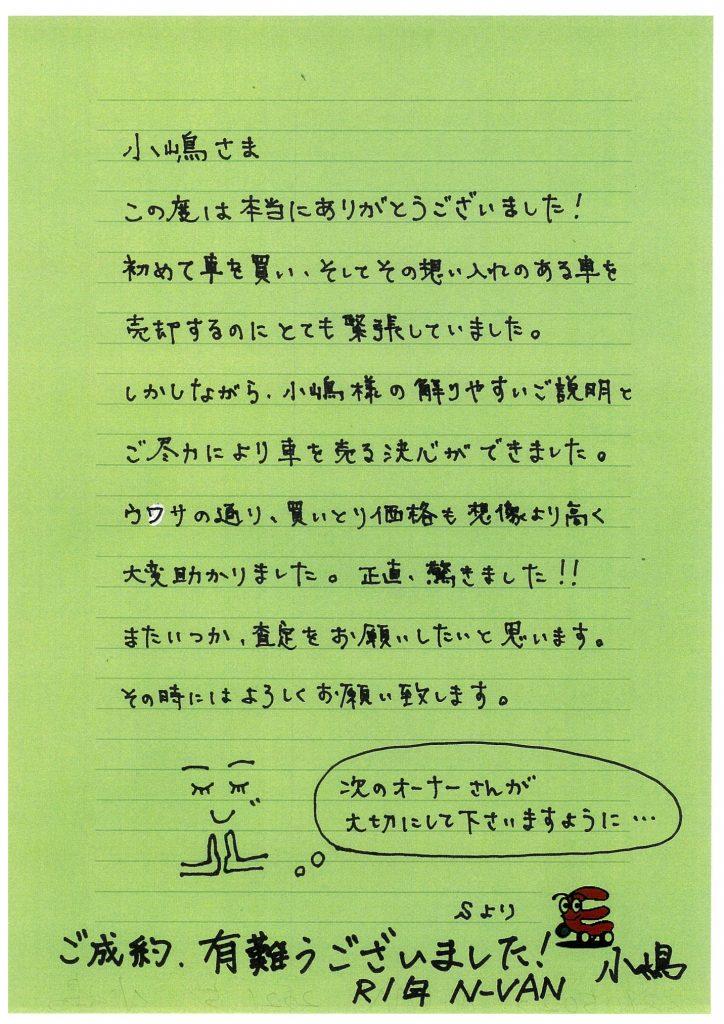 小嶋さま
この度は本当にありがとうございました！
初めて車を買い、そしてその想い入れのある車を
売却するのにとても緊張していました。
しかしながら、小嶋様の解りやすいご説明と
ご尽力により車を売る決心ができました。
ウワサの通り、買いとり価格も想像より高く
大変助かりました。正直、驚きました！！
またいつか、査定をお願いしたいと思います。
その時にはよろしくお願い致します。
次のオーナーさんが
大切にして下さいますように…
Sより
ご成約、有難うございました！
小嶋
R1年 N-VAN